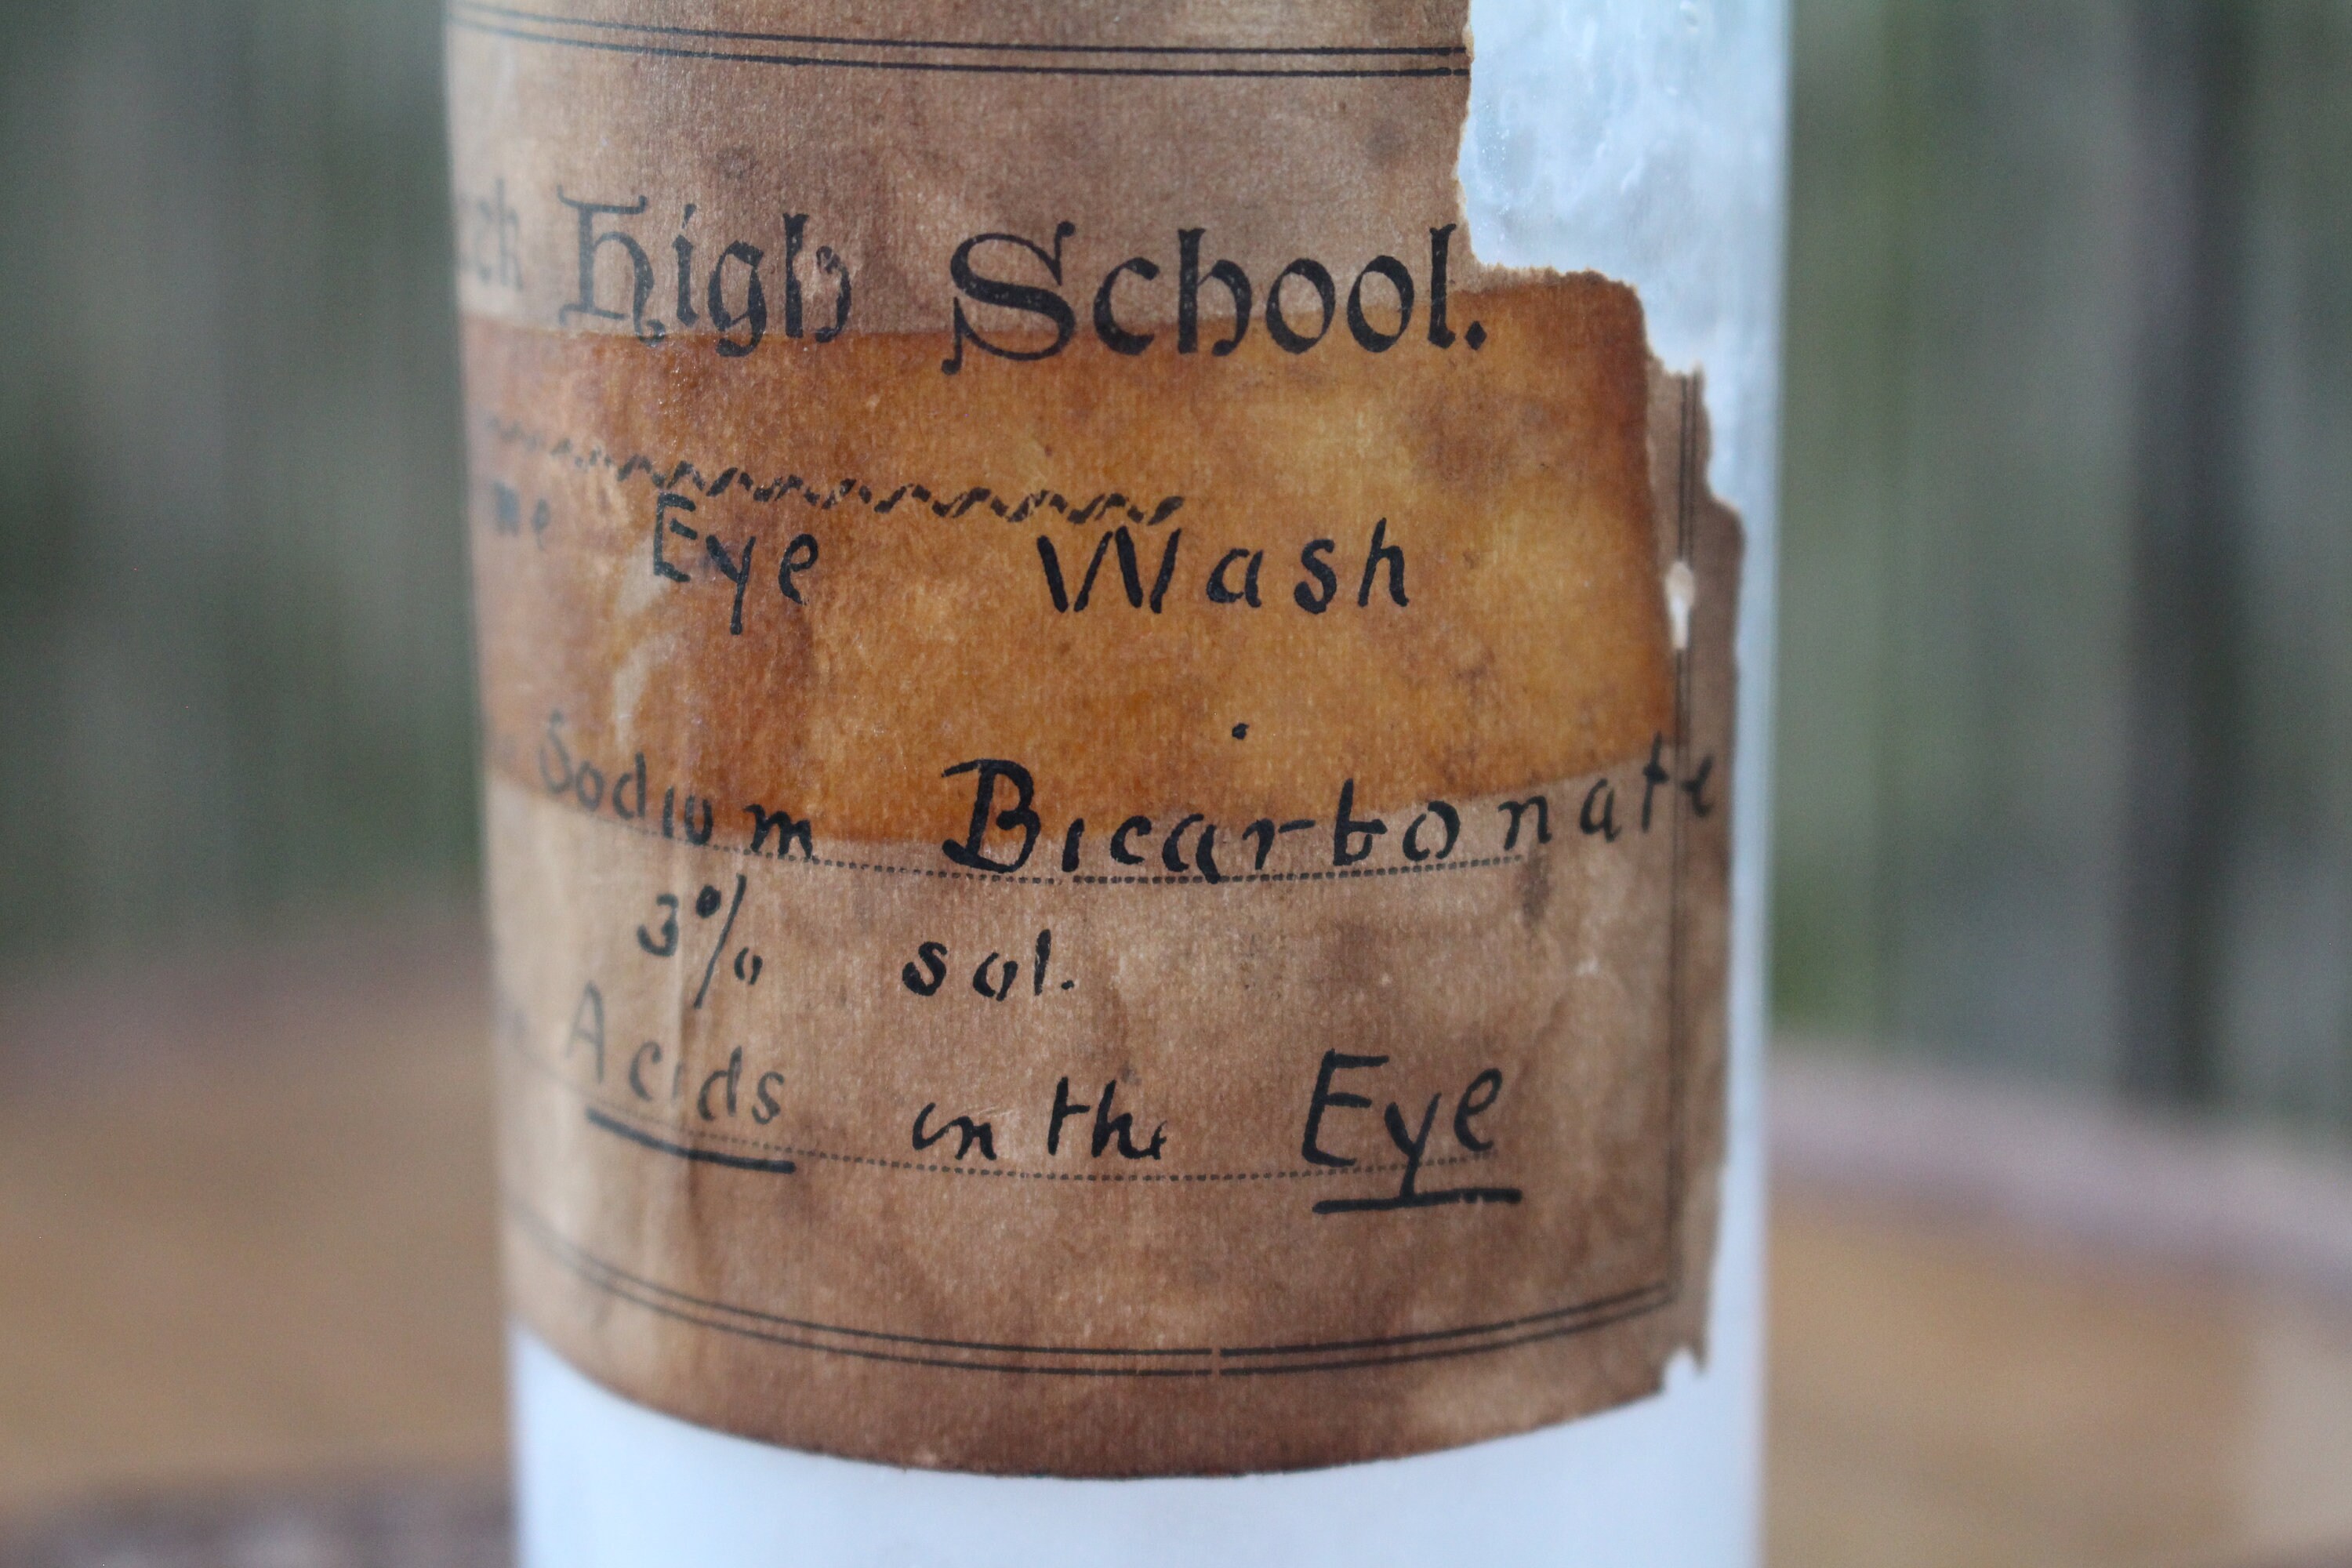 High School.
Eye Wash
Sodium Bicarbonate
3% sol.
Acids in the Eye